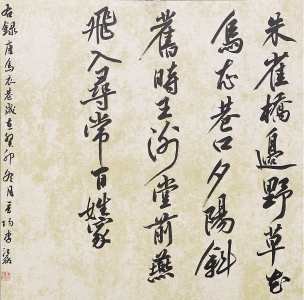 朱雀橋邊野草花
烏衣巷口夕陽斜
舊時王谢堂前燕
飛入尋常百姓家
右録唐烏衣巷歲在癸卯冬月